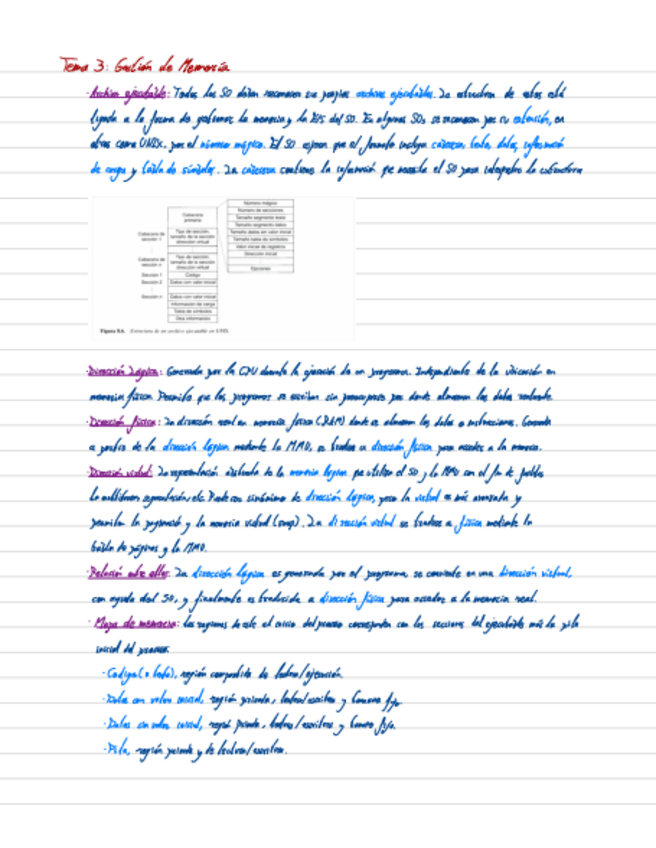 Tema 3: Gestión de Memoria
· Archivo ejecutable: Todos los SO deben reconocer sus propios archivos ejecutables. La estructura de estos está
ligada a la forma de gestionar la memoria y la E/S del SO. En algunos SOs se reconocen por su extensión, en
otros como UNIX, por el número mágico. El SO espera que el formato incluya cabecera, texto, datos, información
de carga y tabla de símbolos. La cabecera contiene la información que necesita el SO para interpretar la estructura
Número mágico
Número de secciones
Cabecera
primaria
Tamaño segmento texto
Tamaño segmento datos
Tamaño datos sin valor inicial
Tamaño tabla de símbolos
Valor inicial de registros
Dirección inicial
Opciones
Cabecera de
sección 1
Tipo de sección,
tamaño de la sección
dirección virtual
Cabecera de
sección n
Tipo de sección,
tamaño de la sección
dirección virtual
Sección 1
Código
Sección 2
Datos con valor inicial
Sección n
Datos con valor inicial
Información de carga
Tabla de símbolos
Otra información
Estructura de un archivo ejecutable en UNIX.
· Dirección Lógica: Generada por la CPU durante la ejecución de un programa. Independiente de la ubicación en
memoria física. Permite que los programas se escriban sin preocuparse por donde almacenan los datos realmente.
· Dirección física: La dirección real en memoria física (RAM) donde se almacenan los datos o instrucciones. Generada
a partir de la dirección lógica mediante la MMU, se traduce a dirección física para acceder a la memoria.
· Dirección virtual: La representación abstracta de la memoria lógica que utiliza el SO y la MMU con el fin de
la multitarea, segmentación, etc. Puede ser sinónimo de dirección lógica, pero la virtual es más avanzada y
permite la paginación y la memoria virtual (swap). La dirección virtual se traduce a física mediante la
tabla de páginas y la MMU.
· Relación entre ellas: La dirección lógica es generada por el programa, se convierte en una dirección virtual,
con ayuda del SO, y finalmente es traducida a dirección física para acceder a la memoria real.
· Mapa de memoria: Las regiones desde el inicio del proceso corresponden con las secciones del ejecutable más la pila
inicial del proceso:
· Código (o texto), región compartida de lectura/ejecución.
· Datos con valor inicial, región privada, lectura/escritura y tamaño fijo.
· Datos sin valor inicial, región privada, lectura/escritura y tamaño fijo.
· Pila, región privada y de lectura/escritura.